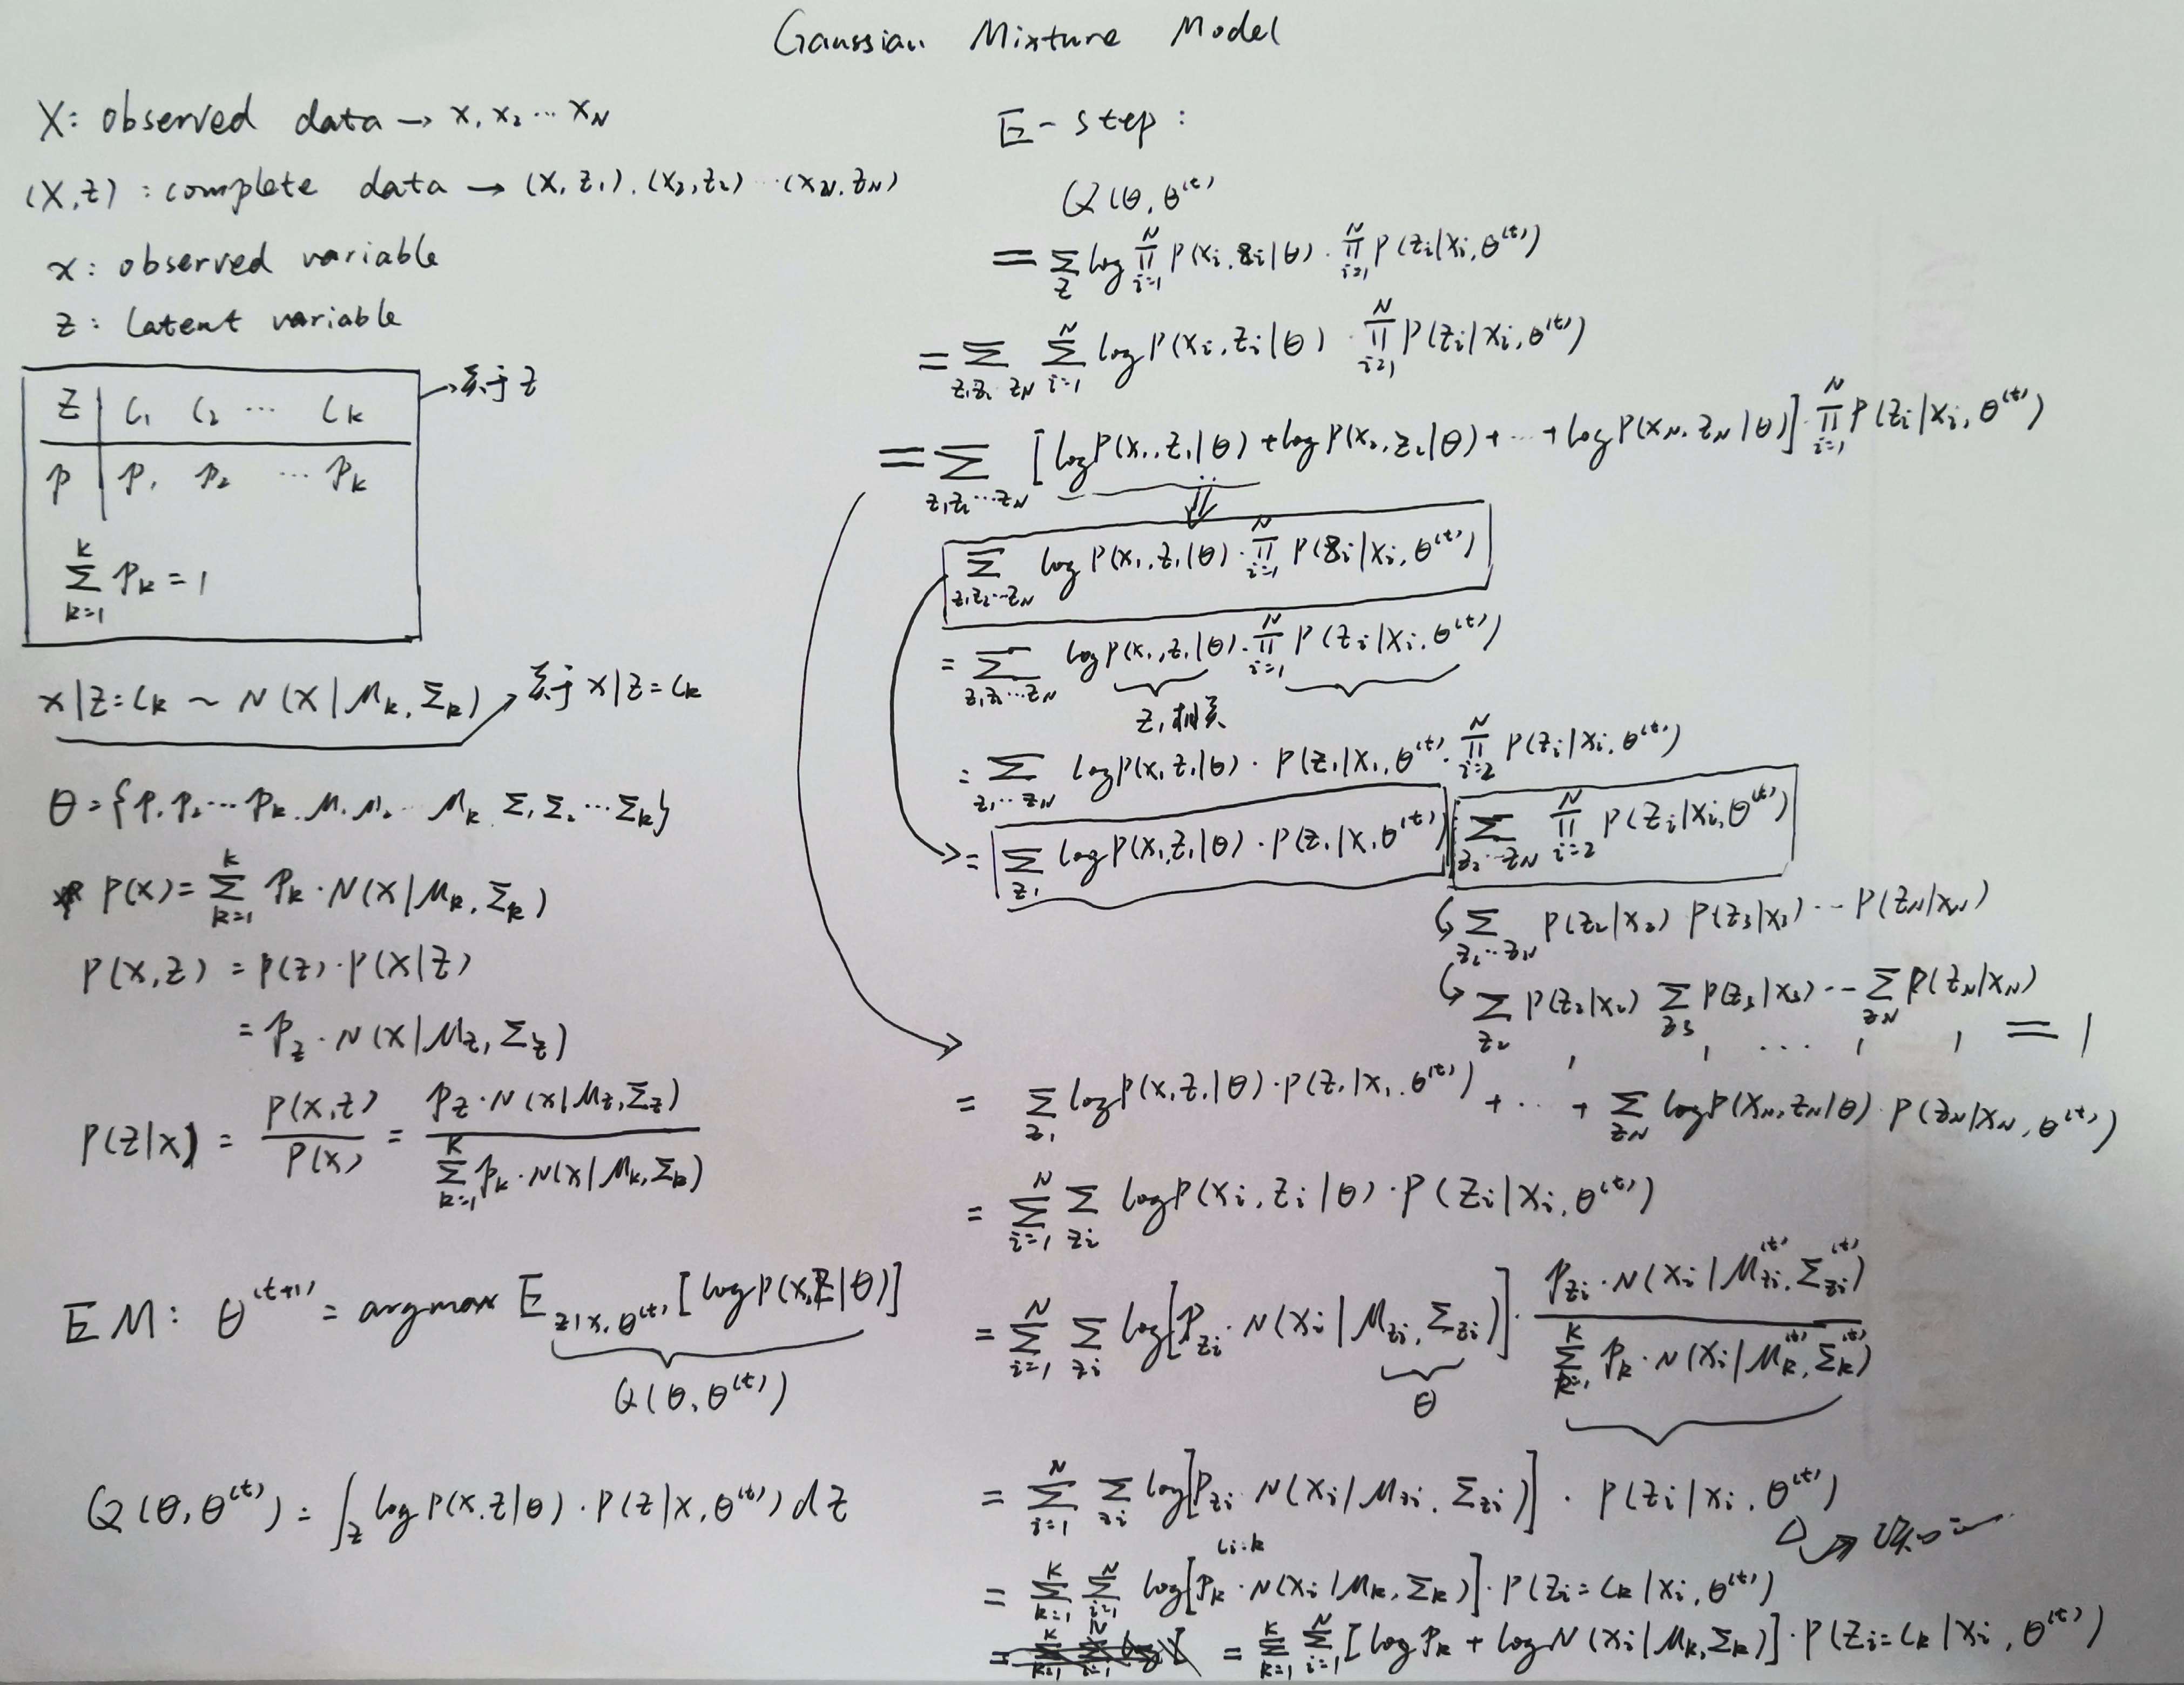 Gaussian Mixture Model
X: observed data → x₁ x₂ ⋯ x_N
(X,Z): complete data → (x₁, z₁), (x₂, z₂) ⋯ (x_N, z_N)
x: observed variable
z: latent variable
关于 z
z | C₁ C₂ ⋯ C_k
p | p₁ p₂ ⋯ p_k
∑_{k=1}^{K} p_k = 1
x|z=C_k ~ N(x|μ_k, Σ_k) 关于 x|z=C_k
θ = {p₁ p₂ ⋯ p_k, μ₁ μ₂ ⋯ μ_k, Σ₁ Σ₂ ⋯ Σ_k}
P(x) = ∑_{k=1}^{K} p_k · N(x|μ_k, Σ_k)
P(x,z) = p(z) · p(x|z)
= p_z · N(x|μ_z, Σ_z)
P(z|x) = P(x,z) / P(x) = p_z · N(x|μ_z, Σ_z) / ∑_{k=1}^{K} p_k · N(x|μ_k, Σ_k)
EM: θ^(t+1) = argmax E_{z|x,θ^(t)} [log p(x,z|θ)]
Q(θ, θ^(t))
Q(θ, θ^(t)) = ∫_z log p(x,z|θ) · P(z|x, θ^(t)) dz
E-step:
Q(θ, θ^(t)
= ∑_z log ∏_{i=1}^{N} P(x_i, z_i|θ) · ∏_{i=1}^{N} P(z_i|x_i, θ^(t))
= ∑_{z₁z₂⋯z_N} ∑_{i=1}^{N} log P(x_i, z_i|θ) · ∏_{i=1}^{N} P(z_i|x_i, θ^(t))
= ∑_{z₁z₂⋯z_N} [log P(x₁, z₁|θ) + log P(x₂, z₂|θ) + ⋯ + log P(x_N, z_N|θ)] ∏_{i=1}^{N} P(z_i|x_i, θ^(t))
∑_{z₁z₂⋯z_N} log P(x₁, z₁|θ) · ∏_{i=1}^{N} P(z_i|x_i, θ^(t))
= ∑_{z₁z₂⋯z_N} log P(x₁, z₁|θ) · ∏_{i=1}^{N} P(z_i|x_i, θ^(t))
z₁相关
= ∑_{z₁⋯z_N} log P(x₁ z₁|θ) · P(z₁|x₁, θ^(t) · ∏_{i=2}^{N} P(z_i|x_i, θ^(t))
= ∑_{z₁} log P(x₁, z₁|θ) · P(z₁|x₁ θ^(t)) ∑_{z₂⋯z_N} ∏_{i=2}^{N} P(z_i|x_i, θ^(t))
∑_{z₂⋯z_N} P(z₂|x₂) P(z₃|x₃) ⋯ P(z_N|x_N)
∑_{z₂} P(z₂|x₂) ∑_{z₃} P(z₃|x₃) ⋯ ∑_{z_N} P(z_N|x_N)
1 1 ⋯ 1 1 = 1
= ∑_{z₁} log P(x₁ z₁|θ) · P(z₁|x₁, θ^(t)) + ⋯ + ∑_{z_N} log P(x_N, z_N|θ) · P(z_N|x_N, θ^(t))
= ∑_{i=1}^{N} ∑_{z_i} log P(x_i, z_i|θ) · P(z_i|x_i, θ^(t))
= ∑_{i=1}^{N} ∑_{z_i} log[p_{z_i} · N(x_i|μ_{z_i}, Σ_{z_i})] · p_{z_i} · N(x_i|μ_{z_i}^(t), Σ_{z_i}^(t)) / ∑_{k=1}^{K} p_k · N(x_i|μ_k^(t), Σ_k^(t))
θ
= ∑_{i=1}^{N} ∑_{z_i} log[p_{z_i} · N(x_i|μ_{z_i}, Σ_{z_i})] · P(z_i|x_i, θ^(t))
= ∑_{k=1}^{K} ∑_{i=1}^{N} log[p_k · N(x_i|μ_k, Σ_k)] · P(z_i=C_k|x_i, θ^(t))
= ∑_{k=1}^{K} ∑_{i=1}^{N} [log p_k + log N(x_i|μ_k, Σ_k)] · P(z_i=C_k|x_i, θ^(t))